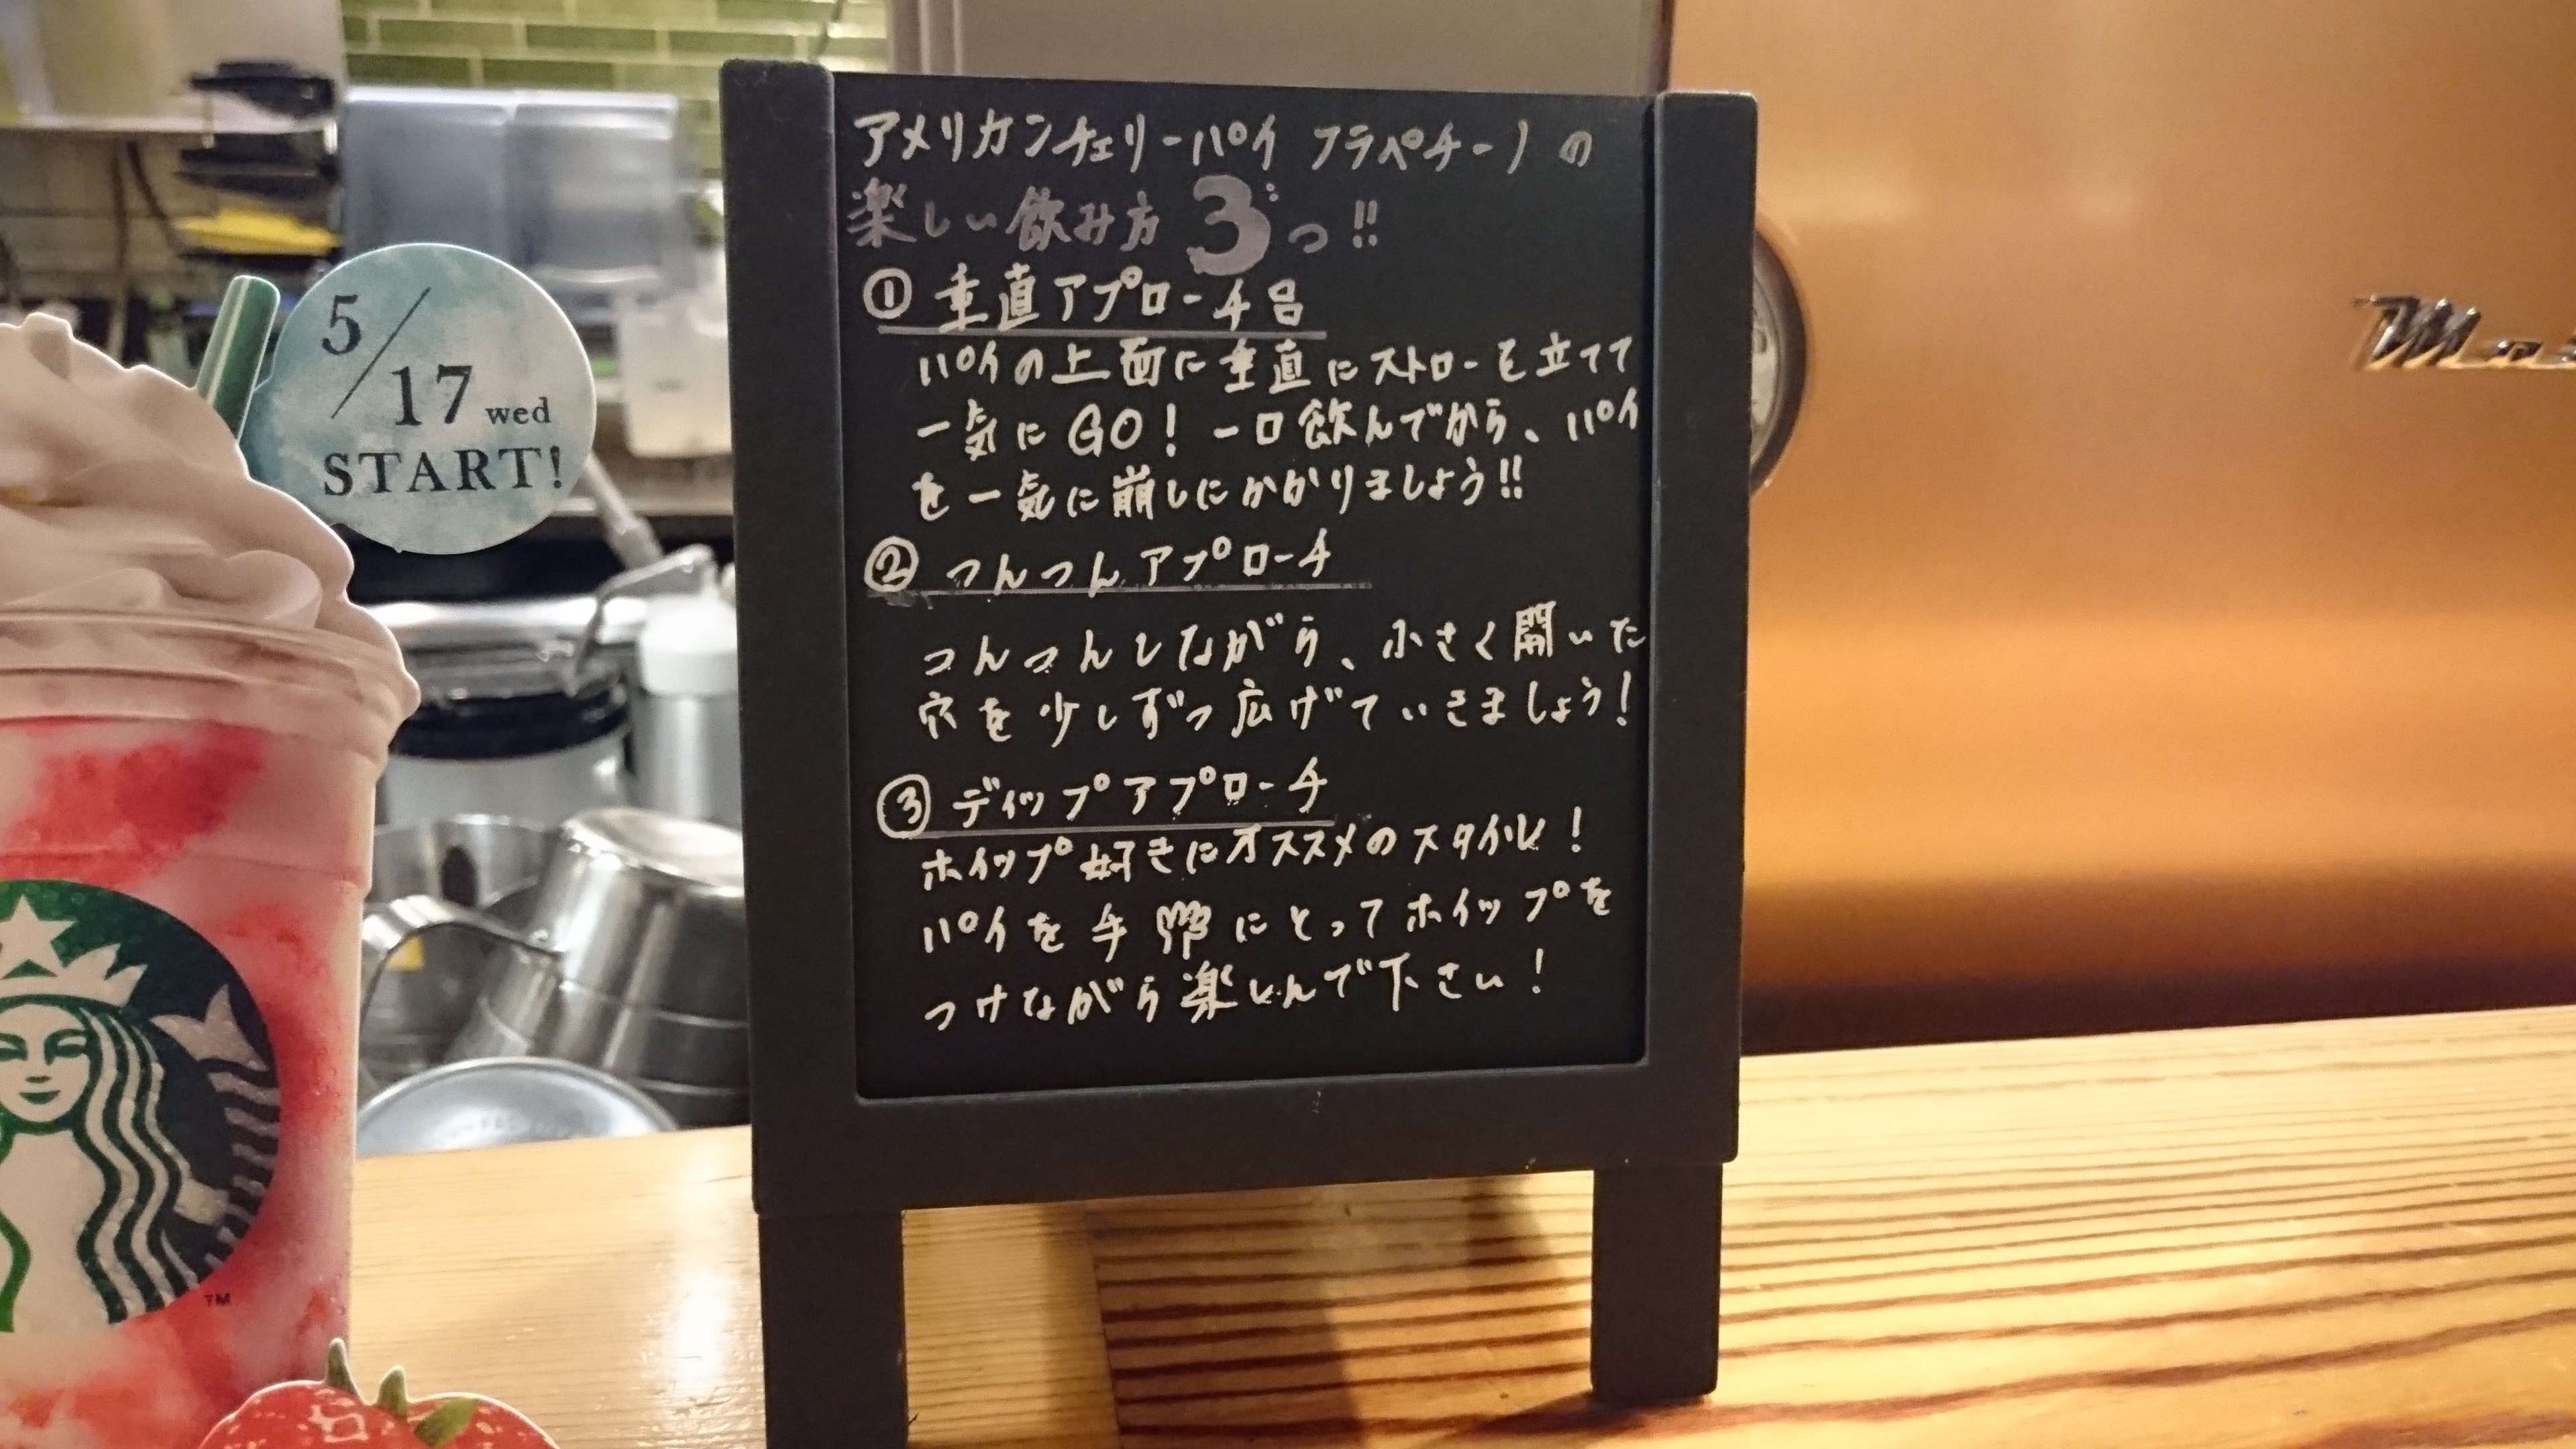 5/17 wed
START!
TM
アメリカンチェリーパイ フラペチーノの
楽しい飲み方 3つ!!
① 垂直アプローチ
パイの上面に垂直にストローを立てて
一気にGO! 一口飲んでから、パイ
を一気に崩しにかかりましょう!!
② つんつんアプローチ
つんつんしながら、小さく開いた
穴を少しずつ広げていきましょう!
③ ディップアプローチ
ホイップ好きにオススメのスタイル!
パイを手にとってホイップを
つけながら楽しんで下さい!